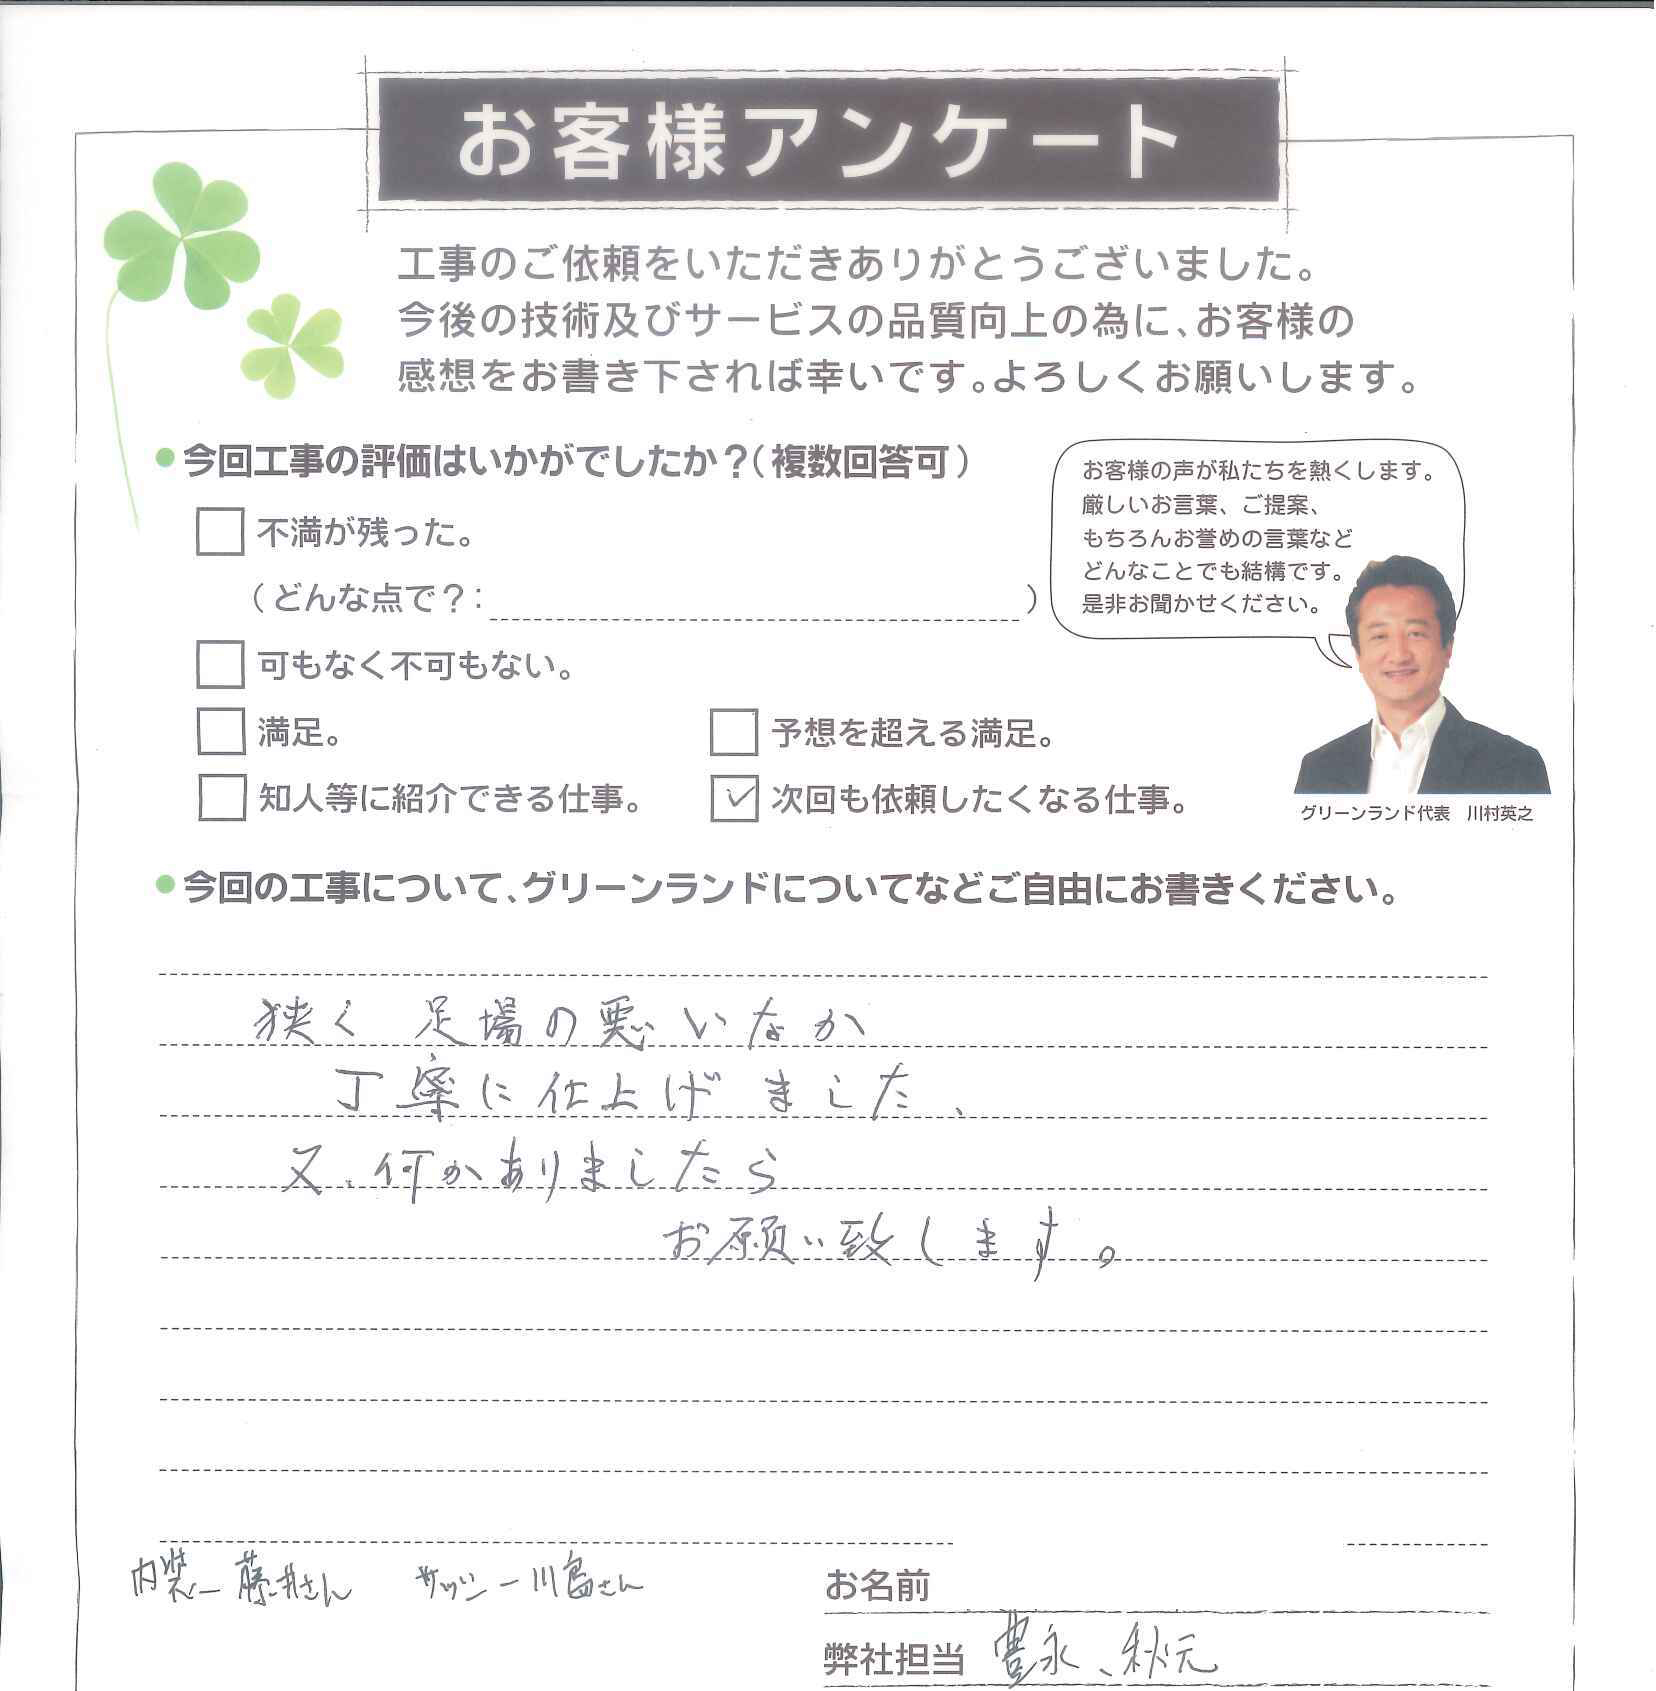 お客様アンケート
工事のご依頼をいただきありがとうございました。
今後の技術及びサービスの品質向上の為に、お客様の
感想をお書き下されば幸いです。よろしくお願いします。
今回工事の評価はいかがでしたか？（複数回答可）
不満が残った。
（どんな点で？： ）
可もなく不可もない。
満足。
予想を超える満足。
知人等に紹介できる仕事。
次回も依頼したくなる仕事。
お客様の声が私たちを熱くします。
厳しいお言葉、ご提案、
もちろんお誉めの言葉など
どんなことでも結構です。
是非お聞かせください。
グリーンランド代表　川村英之
今回の工事について、グリーンランドについてなどご自由にお書きください。
狭く 足場の悪いなか
丁寧に仕上げました、
又、何かありましたら
お願い致します。
内装ー藤井さん　サッシー川島さん
お名前
弊社担当 豊永、秋元